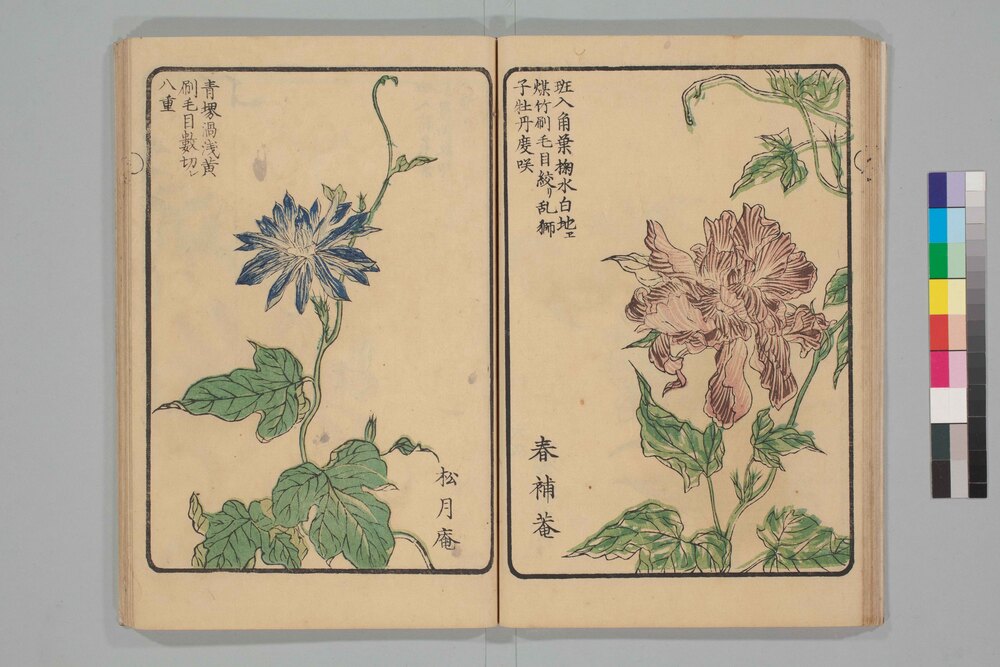 斑入角葉掬水白地ヱ
煤竹刷毛目絞リ乱獅
子牡丹度咲
春補菴
青堺渦浅黄
刷毛目數切レ
八重
松月庵